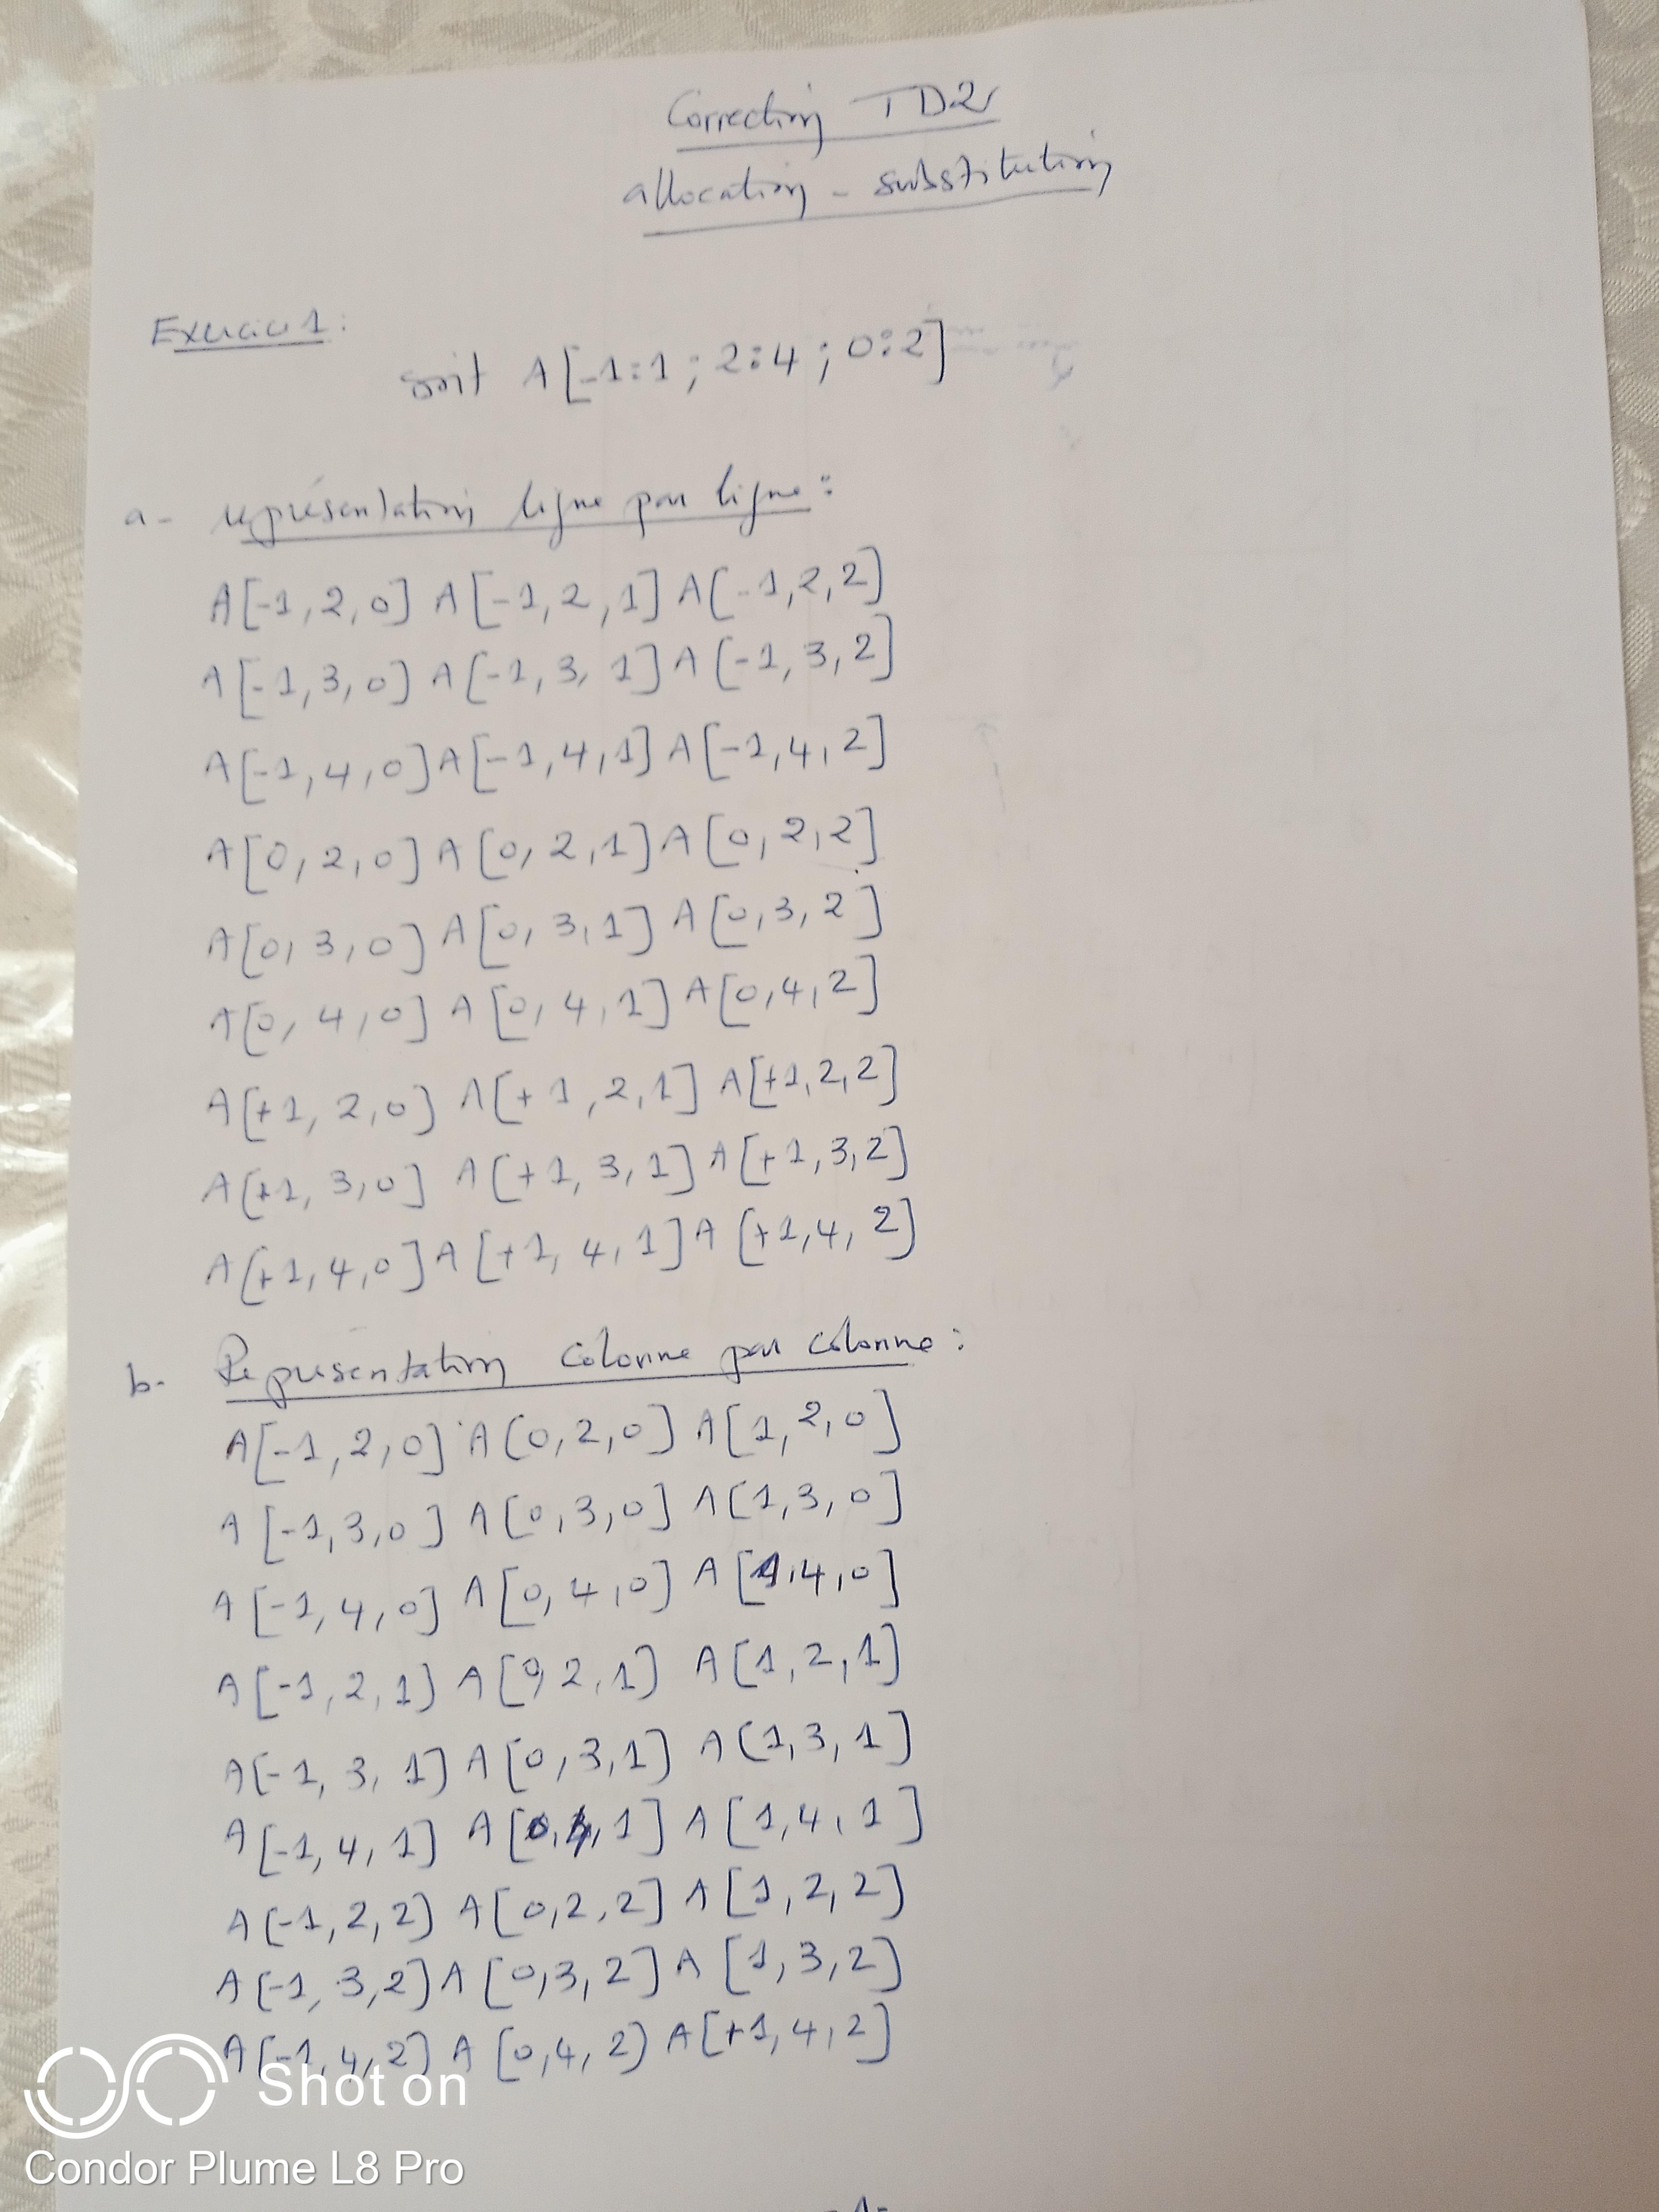 Correction TD2
allocation - substitution
Exercice 1:
soit A[-1:1; 2:4; 0:2]
a- représentation ligne par ligne:
A[-1,2,0] A[-1,2,1] A[-1,2,2]
A[-1,3,0] A[-1,3,1] A[-1,3,2]
A[-1,4,0] A[-1,4,1] A[-1,4,2]
A[0,2,0] A[0,2,1] A[0,2,2]
A[0,3,0] A[0,3,1] A[0,3,2]
A[0,4,0] A[0,4,1] A[0,4,2]
A[+1,2,0] A[+1,2,1] A[+1,2,2]
A[+1,3,0] A[+1,3,1] A[+1,3,2]
A[+1,4,0] A[+1,4,1] A[+1,4,2]
b- Représentation colonne par colonne:
A[-1,2,0] A[0,2,0] A[1,2,0]
A[-1,3,0] A[0,3,0] A[1,3,0]
A[-1,4,0] A[0,4,0] A[1,4,0]
A[-1,2,1] A[0,2,1] A[1,2,1]
A[-1,3,1] A[0,3,1] A[1,3,1]
A[-1,4,1] A[0,4,1] A[1,4,1]
A[-1,2,2] A[0,2,2] A[1,2,2]
A[-1,3,2] A[0,3,2] A[1,3,2]
A[-1,4,2] A[0,4,2] A[+1,4,2]
Shot on
Condor Plume L8 Pro